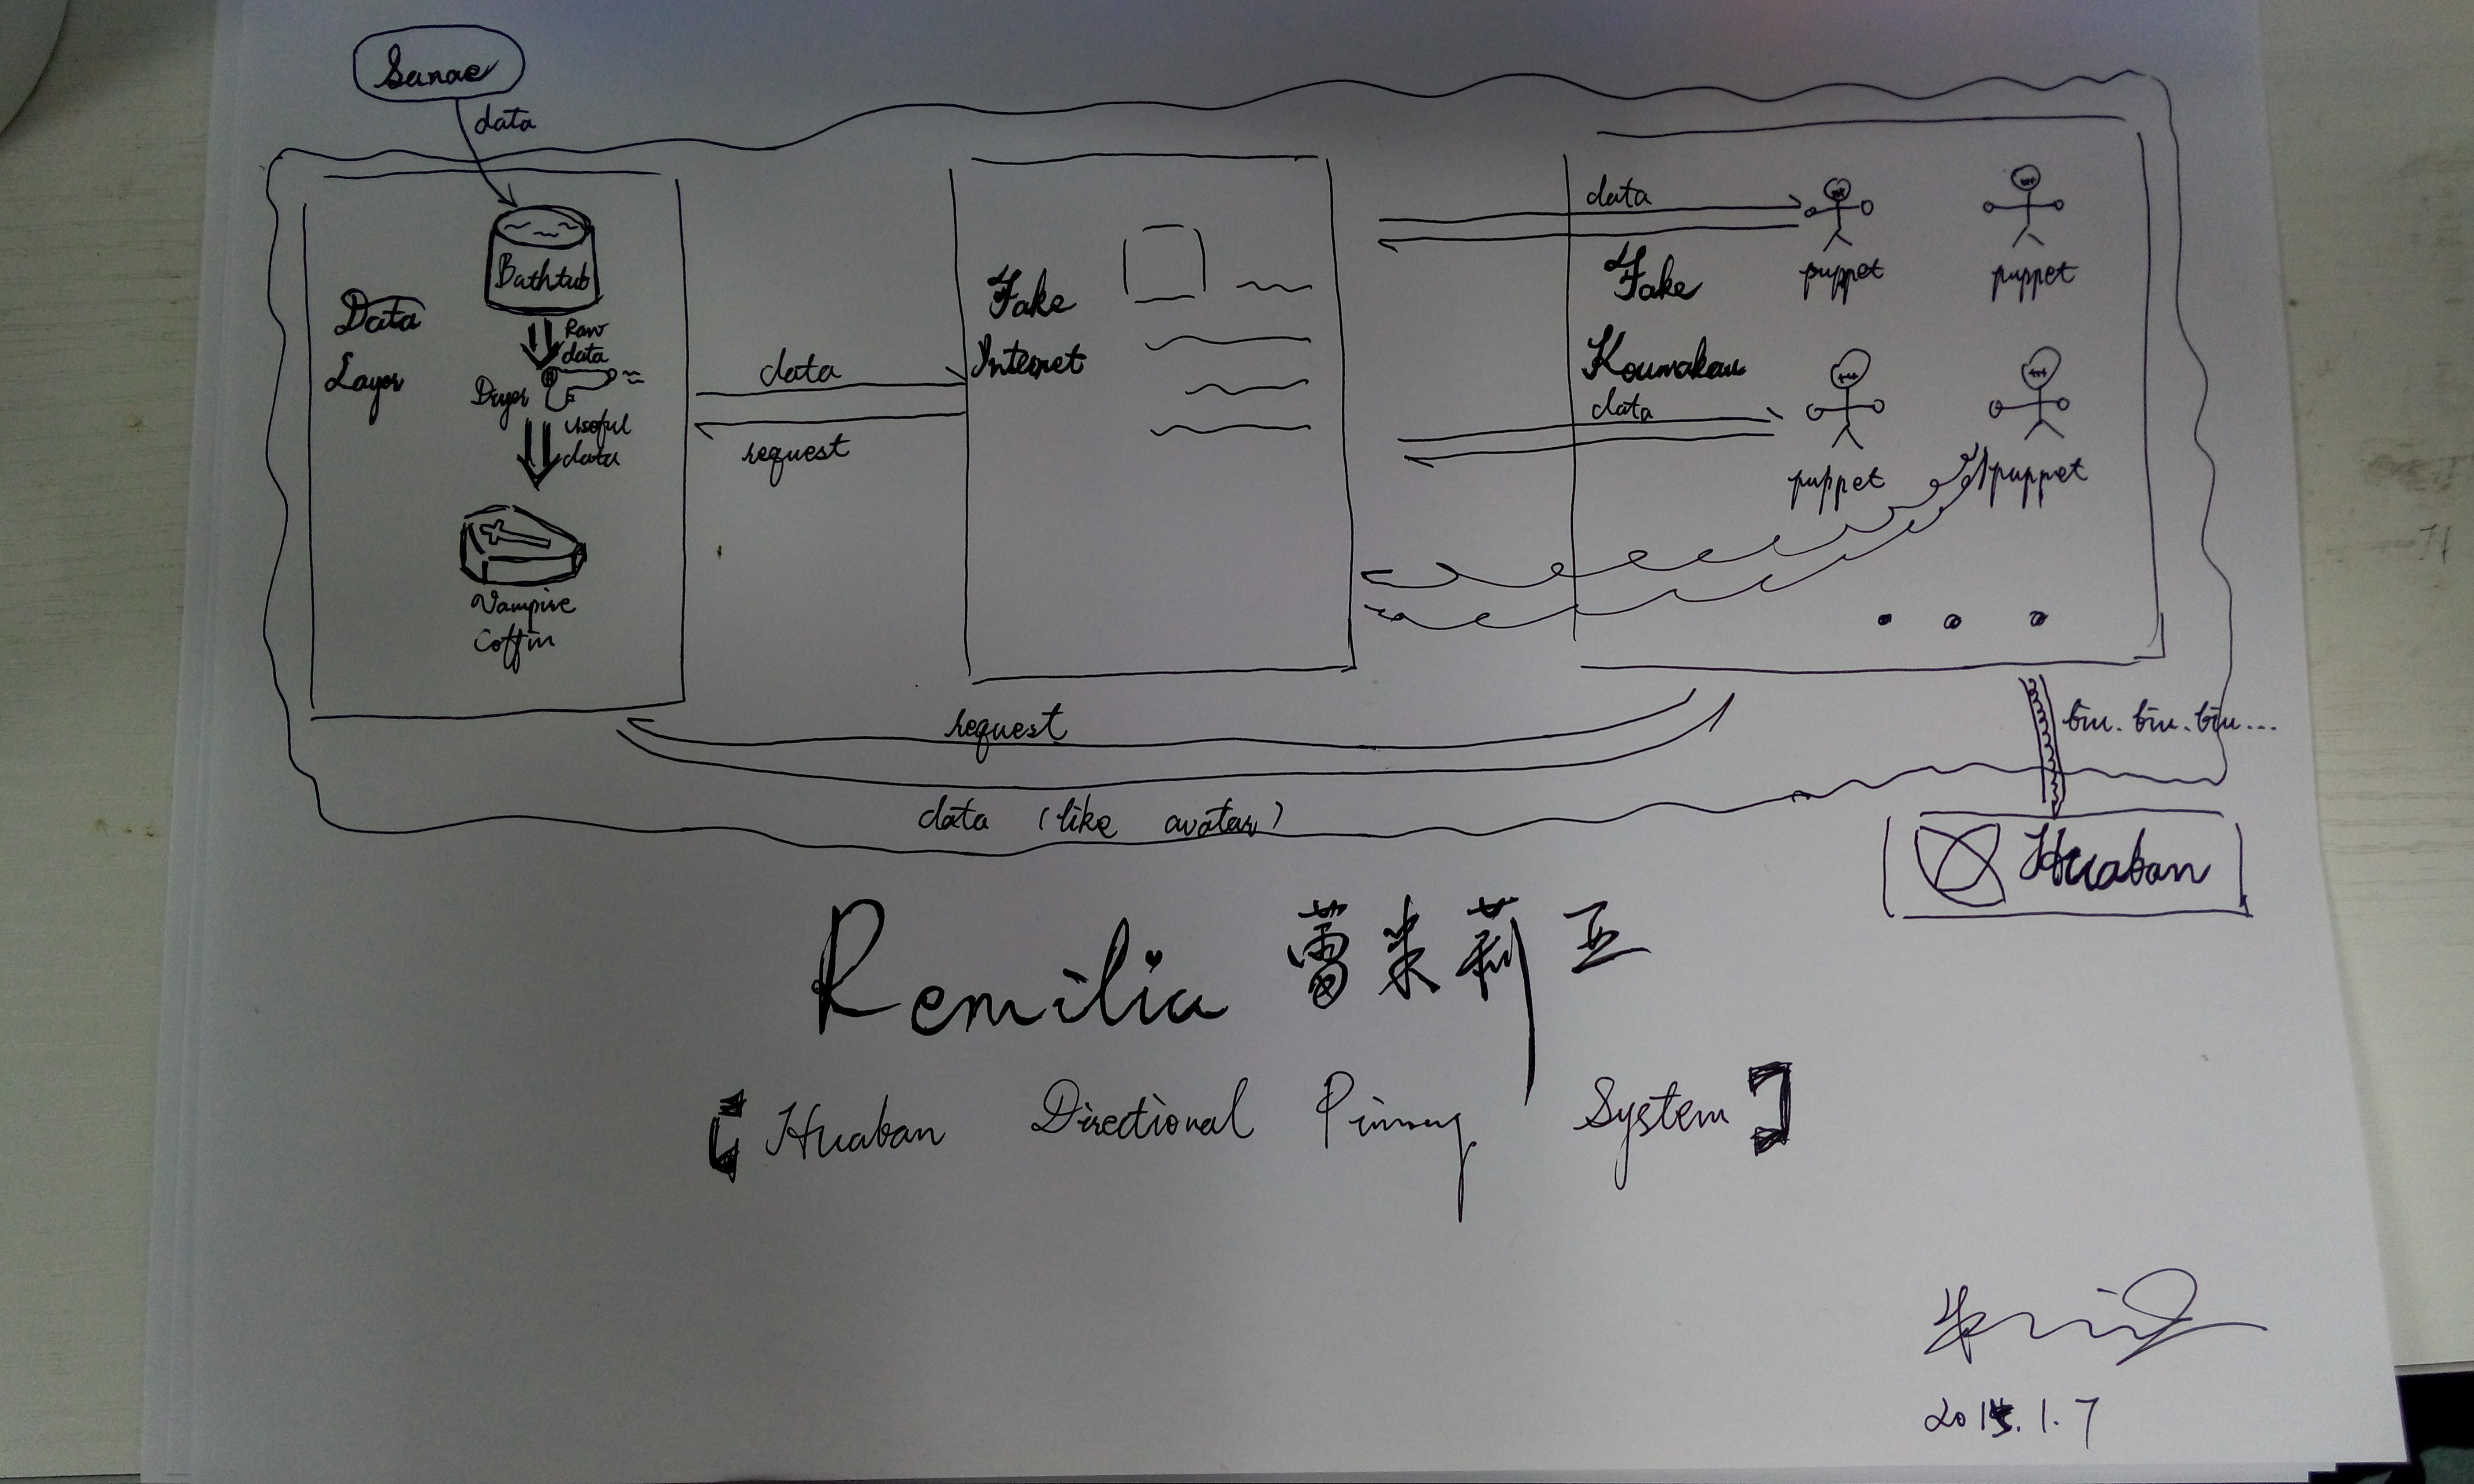 Sanae
data
Bathtub
Raw
data
Dryer
useful
data
Vampire
Coffin
Data
Layer
data
request
Fake
Internet
data
Fake
Koumakan
data
puppet
puppet
puppet
puppet
request
data (like avatar)
biu. biu. biu...
Huaban
Remilia 蕾米莉亚
【Huaban Directional Pinning System】
2015.1.7